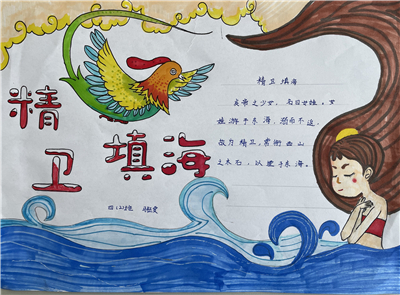 精卫填海
精卫填海
炎帝之少女,名曰女娃。女
娃游于东海,溺而不返,
故为精卫,常衔西山
之木石,以堙于东海。
四(2)班